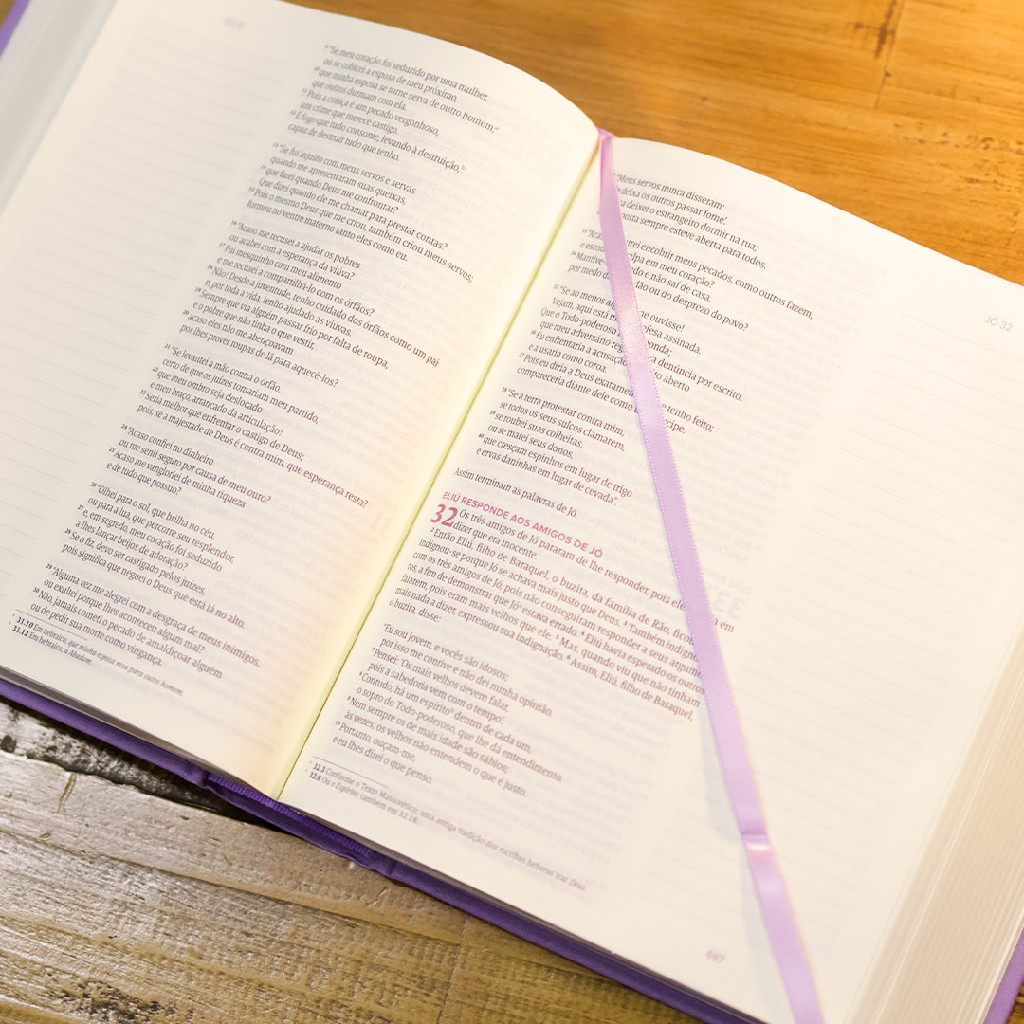 ⁹ "Se meu coração foi seduzido por uma mulher,
ou se cobicei a esposa de meu próximo,
¹⁰ que minha esposa se torne serva de outro homem;ᵃ
que outros durmam com ela.
¹¹ Pois a cobiça é um pecado vergonhoso,
um crime que merece castiga.
¹² É fogo que tudo consome, levando à destruição,ᵇ
capaz de destruir tudo que tenho.
¹³ "Se fui injusto com meus servos e servas
quando me apresentaram suas queixas,
¹⁴ que farei quando Deus me confrontar?
Que direi quando ele me chamar para prestar contas?
¹⁵ Pois o mesmo Deus que me criou, também criou meus servos;
formou no ventre materno tanto eles como eu.
¹⁶ "Acaso me recusei a ajudar os pobres
ou acabei com a esperança da viúva?
¹⁷ Fui mesquinho com meu alimento
e me recusei a compartilhá-lo com os órfãos?
¹⁸ Não! Desde a juventude, tenho cuidado dos órfãos como um pai
e, por toda a vida, tenho ajudado as viúvas.
¹⁹ Sempre que via alguém passar frio por falta de roupa,
e o pobre que não tinha o que vestir,
²⁰ acaso eles não me abençoavam
por lhes prover roupas de lã para aquecê-los?
²¹ "Se levantei a mão contra o órfão,
certo de que os juízes tomariam meu partido,
²² que meu ombro seja deslocado
e meu braço, arrancado da articulação!
²³ Seria melhor que enfrentar o castigo de Deus;
pois, se a majestade de Deus é contra mim, que esperança resta?
²⁴ "Acaso confiei no dinheiro
ou me senti seguro por causa de meu ouro?
²⁵ Acaso me vangloriei de minha riqueza
e de tudo que possuo?
²⁶ "Olhei para o sol, que brilha no céu,
ou para a lua, que percorre seu esplendor,
²⁷ e, em segredo, meu coração foi seduzido
a lhes lançar beijos de adoração?
²⁸ Se o fiz, devo ser castigado pelos juízes,
pois significa que neguei o Deus que está lá no alto.
²⁹ "Alguma vez me alegrei com a desgraça de meus inimigos,
ou exultei porque lhes aconteceu algum mal?
³⁰ Não, jamais cometi o pecado de amaldiçoar alguém
ou de pedir sua morte como vingança.
31.10 Em hebraico, que minha esposa moa para outro homem.
31.12 Em hebraico, a Abadom.
³¹ "Meus servos nunca disseram:
deixa os outros passar fome'.
deixei o estrangeiro dormir na rua;
porta sempre esteve aberta para todos.
encobrir meus pecados, como outros fazem,
culpa em meu coração?
³⁴ Mantive e não saí de casa,
por medo da ou do desprezo do povo?
³⁵ "Se ao menos alguém me ouvisse!
Vejam, aqui está minha defesa assinada.
Que o Todo-poderoso me responda;
que meu adversário a denúncia por escrito.
³⁶ Eu enfrentaria a acusação aberto
e a usaria como coroa.
³⁷ Pois eu diria a Deus exatamente tenho feito;
compareceria diante dele como príncipe.
³⁸ "Se a terra protestar contra mim,
se todos os seus sulcos clamarem,
³⁹ se roubei suas colheitas,
ou se matei seus donos,
⁴⁰ que cresçam espinhos em lugar de trigo
e ervas daninhas em lugar de cevada".
Assim terminam as palavras de Jó.
ELIÚ RESPONDE AOS AMIGOS DE JÓ
32 Os três amigos de Jó pararam de lhe responder, pois ele em
dizer que era inocente.
² Então Eliú, filho de Baraquel, o buzita, da família de Rão, ficou
indignou-se porque Jó se achava mais justo que Deus. ³ Também indignou-
com os três amigos de Jó, pois não conseguiram responder a seus argumen-
tos, a fim de demonstrar que Jóᵃ estava errado. ⁴ Eliú havia esperado os outros
falarem, pois eram mais velhos que ele. ⁵ Mas, quando viu que não tinham
mais nada a dizer, expressou sua indignação. ⁶ Assim, Eliú, filho de Baraquel,
o buzita, disse:
"Eu sou jovem, e vocês são idosos;
por isso me contive e não dei minha opinião.
⁷ Pensei: 'Os mais velhos devem falar,
pois a sabedoria vem com o tempo'.
⁸ Contudo, há um espíritoᵇ dentro de cada um,
o sopro do Todo-poderoso, que lhe dá entendimento.
⁹ Nem sempre os de mais idade são sábios;
às vezes, os velhos não entendem o que é justo.
¹⁰ Portanto, ouçam-me,
e eu lhes direi o que penso.
32.3 Conforme o Texto Massorético; uma antiga tradição dos escribas hebreus traz Deus.
32.8 Ou o Espírito; também em 32.18.
JÓ 32
697